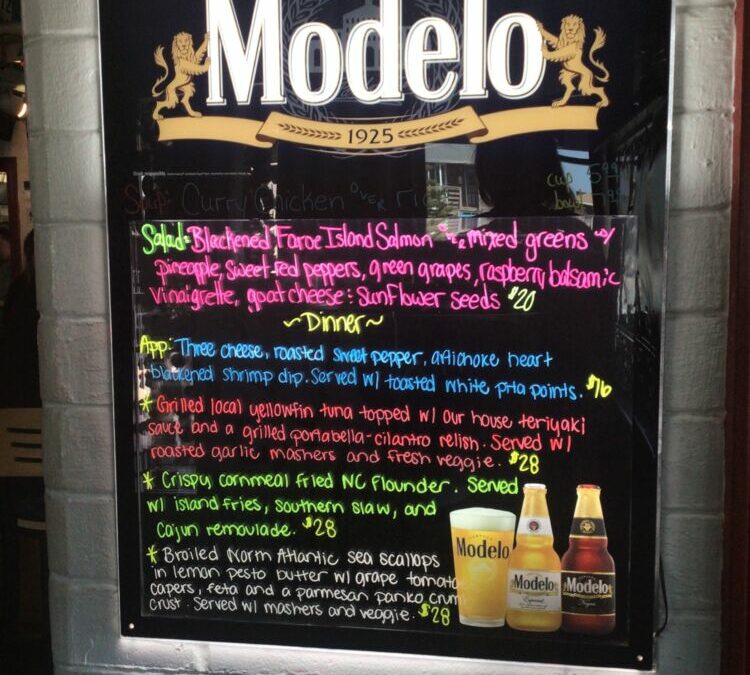 Modelo
1925
Soup: Curry Chicken over rice
cup 5.99
bowl 7.99
Salad: Blackened Faroe Island Salmon over mixed greens w/
pineapple, sweet red peppers, green grapes, raspberry balsamic
vinaigrette, goat cheese : Sunflower seeds $20
~Dinner~
App: Three cheese, roasted sweet pepper, artichoke heart
blackened shrimp dip. Served w/ toasted white pita points. $16
* Grilled local yellowfin tuna topped w/ our house teriyaki
sauce and a grilled portabella-cilantro relish. Served w/
roasted garlic mashers and fresh veggie. $28
* Crispy cornmeal fried NC flounder. Served
w/ island fries, southern slaw, and
Cajun remoulade. $28
* Broiled North Atlantic sea scallops
in lemon pesto butter w/ grape tomato
capers, feta and a parmesan panko crumb
crust. Served w/ mashers and veggie. $28
Modelo
Modelo
Especial
Modelo
Negra